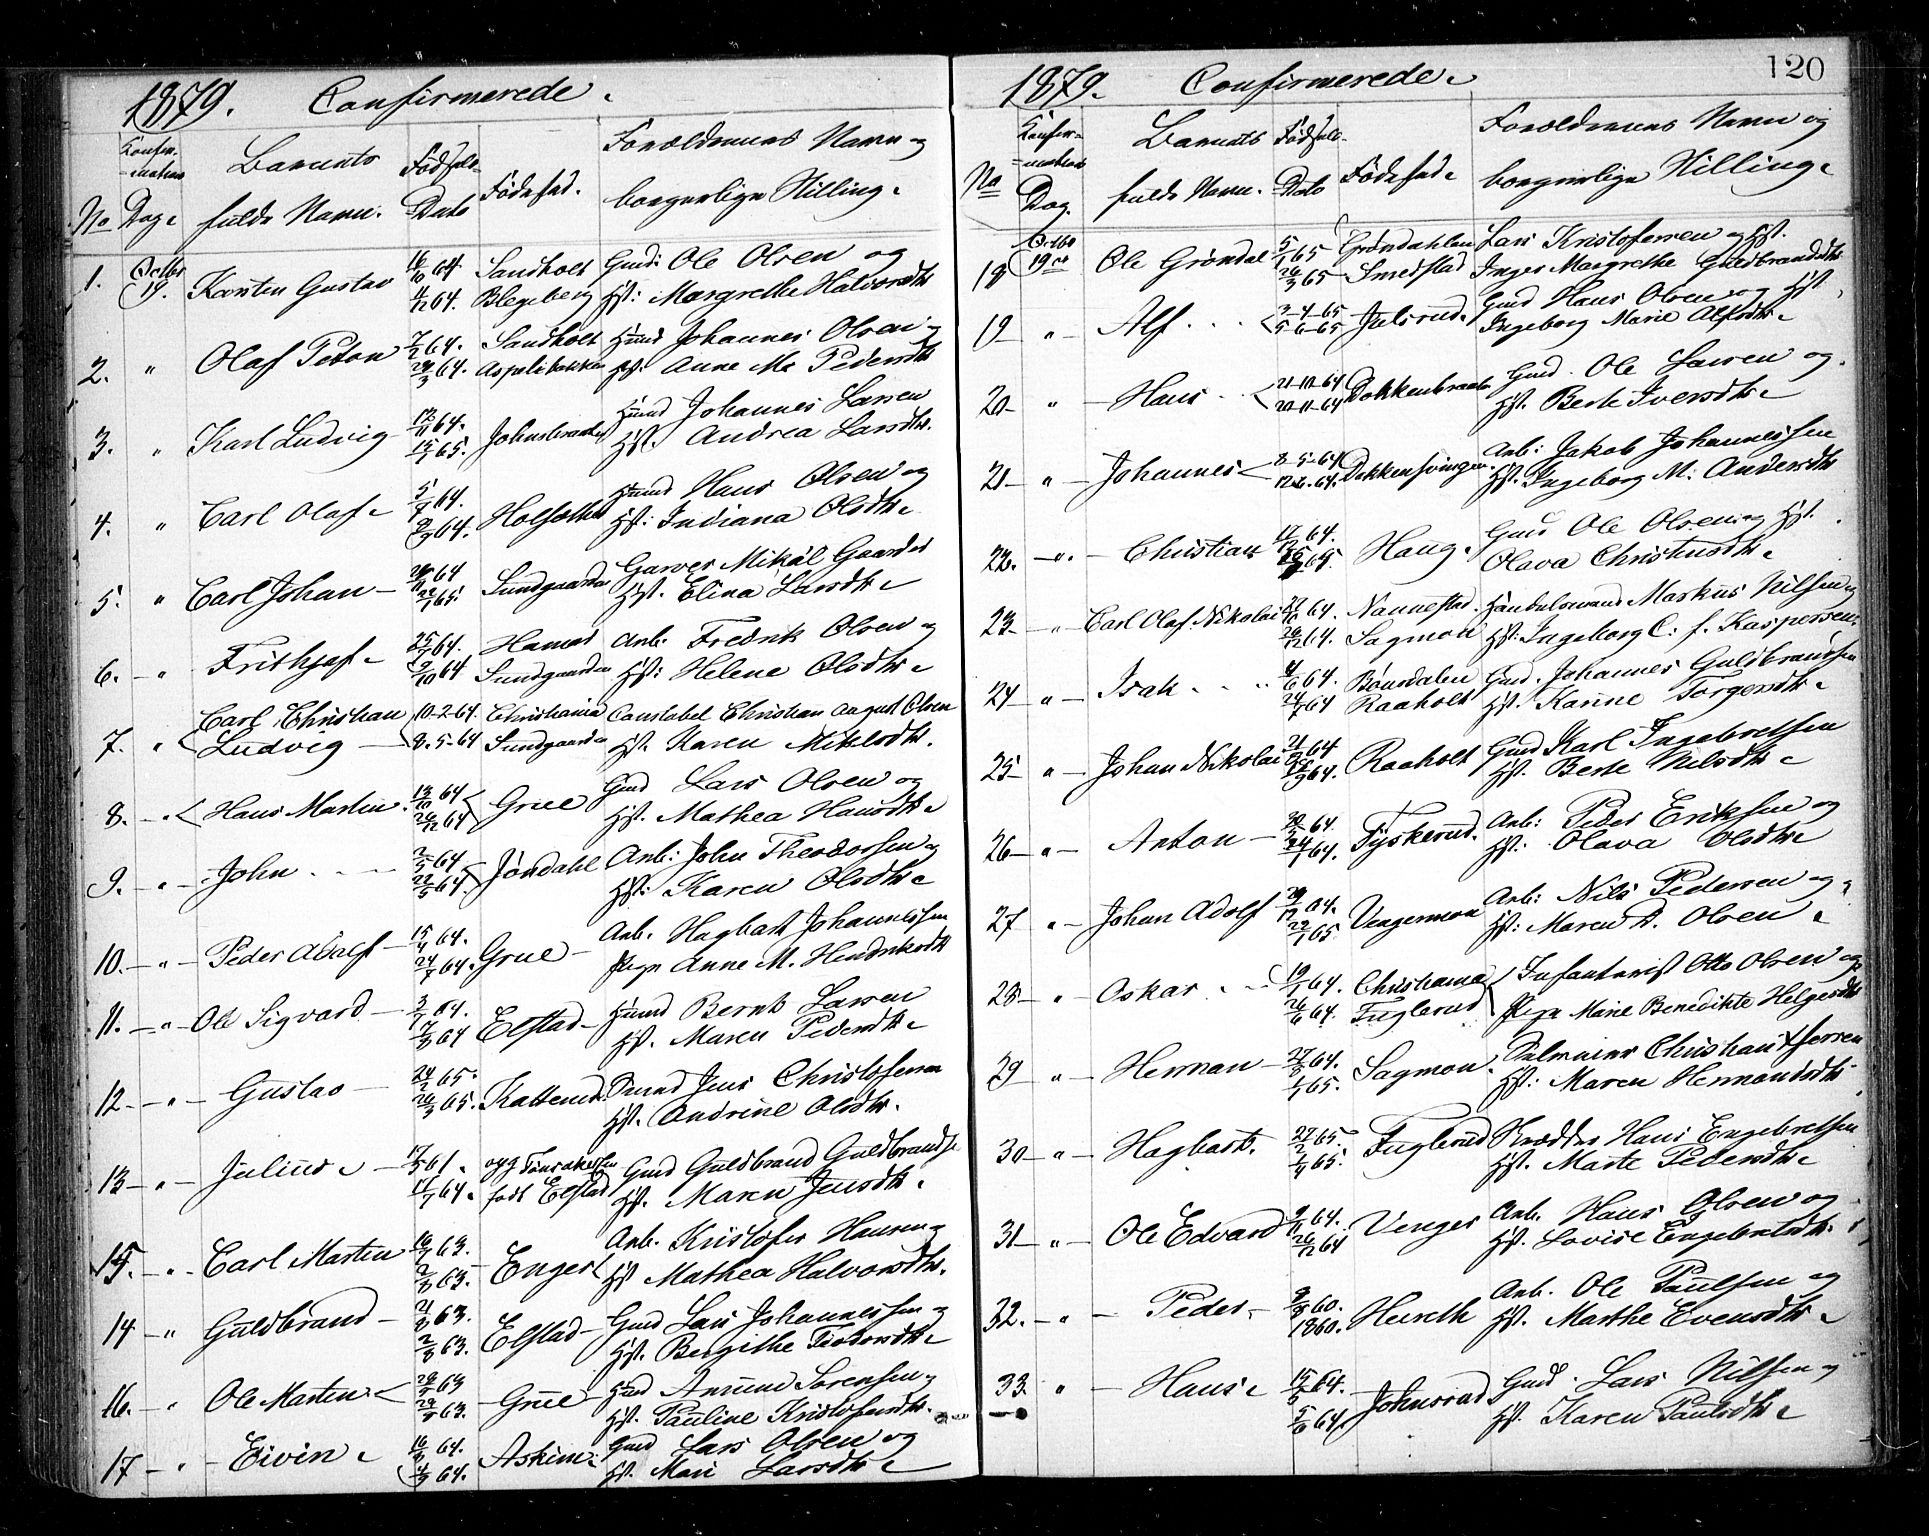 1879. Confirmerede.
No
Dag.
Barnets
fulde Navn.
Fødsels-
Dato
Fødested.
Forældrenes Navn og
borgerlige Stilling.
1. Octbr 19. Karsten Gustav 16/10 64. Sandholt Gmd: Ole Olsen og
4/12 64. hst: Margrethe Halvorsdtr
2. " Olaf Peton 7/2 64. Sandholt Johannes Olsen og
64. Anne M. Pedersdtr
3. " Karl Ludvig 64. Johannes Larsen
15/1 65. hst. Andrea Larsdtr.
4. " Carl Olaf 5/7 64. Hans Olsen og
64. hst: Indiana Olsdtr
5. " Carl Johan 64 Sundgaarden Garver Mikal Gaarder
22/1 65. hst. Elina Larsdtr
6. " Frithjof 25/7 64. Hamar Arb. Fredrik Olsen og
9/10 64 Sundgaarden hst: Helene Olsdtr
7. " Carl Christian 10-2-64. Christiania Constabel Christian August Olsen
Ludvig 8-5-64 Sundgaarden hst. Karen Mikkelsdtr.
8. " Hans Martin 13/10 64 Grue Gmd Lars Olsen og
26/12 64 hst. Mathea Hansdtr
9. " John 2/5 64 Jöndahl Arb: John Theodorsen og
22/5 64. hst: Karen Olsdtr
10. " Peder Adolf 15/4 64. Grue Arb. Hagbart Johannessen
24/7 64. Pige Anne M. Hendriksdtr
11. " Ole Sigvard 3/7 64. Elstad Husmd Bernt Larsen
64 hst. Maren Pedersdtr
12. " Gustav 24/2 65. Katterud. Jens Christofersen
26/3 65. hst. Andrine Olsdtr.
13 " Julius 61. Gmd Guldbrand Guldbrands.
17/7 64. født Elstad hst. Maren Jensdtr.
15. " Carl Martin 16/7 63. Enger Arb. Kristofer Hansen og
2/8 63. hst Mathea Halvorsdtr.
14 " Guldbrand 63. Elstad Gmd Lars Johannessen og
2/8 63. hst. Bergithe
16. " Ole Martin 63 Grue Amund Sørensen og
63. hst. Pauline Kristofersdtr.
17 " Eivin 16/8 64. Askim Gmd Lars Olsen og
64. hst. Mari Larsdtr
120
1879. Confirmerede.
No
Dag.
Barnets
fulde Navn.
Fødsels-
Dato
Fødested.
Forældrenes Navn og
borgerlige Stilling.
18 Octbr 19de Ole Gröndal 5/1 65 Gröndahlen Lars Kristofersen og hst.
26/3 65 Smedstad Inger Margrethe Guldbrandsdtr
19 " Alf 3-4-65 Julsrud. Gmd Hans Olsen og hst.
5-6-65 Ingeborg Marie Alfsdtr
20 " Hans 21-10-64 Gmd. Ole Larsen og
20-11-64 hst. Berte Iversdtr
21 " Johannes 8-5-64 Dokkensvingen. Arb: Jakob Johannessen
hst. Ingeborg M. Andersdtr
22. " Christian 64. Haug. Gmd Ole Olsen og hst.
65. Olava Christensdtr
23 " Carl Olaf Nikolai 64. Nannestad. Handelsmand Markus Nilsen og
26/12 64. Sagmoen hst: Ingeborg C: f. Kaspersen.
24 " Isak 4/6 64. Bönsdalen Gmd. Johannes Guldbrandsen
24/7 64 Raaholt hst. Karine Torgersdtr
25 " Johan Nikolai 64 Raaholt Gmd Karl Ingebretsen
64. hst. Berte Nilsdtr
26 " Anton 64. Tyskerud. Arb: Peder Eriksen og
64. hst: Olava Olsdtr
27 " Johan Adolf 29/12 64. Vengermoen Arb: Nils Pedersen og
22/1 65. hst: Maren A. Olsen
28 " Oskar 19/1 64. Christiania Infanterist Otto Olsen og
26/6 64. Fuglerud Pige Marie Benedikte Helgesdtr
29 " Herman 64. Sagmoen. Christian
1/1 65. hst: Maren Hermandsdtr
30 " Hagbart. 27/2 65. Fuglerud Skrædder Hans Engebretsen
65. hst. Marte Pedersdtr
31 " Ole Edvard 9/11 64. Venger Arb. Hans Olsen og
26/12 64 hst. Lovise Engebretsdtr.
32. " Peder 60. Hurdle Arb. Ole Paulsen og
1860. hst. Marthe Evensdtr
33. " Hans 64. Johnsrud Gmd. Lars Nilsen og
5/6 64. hst. Karen Paulsdtr